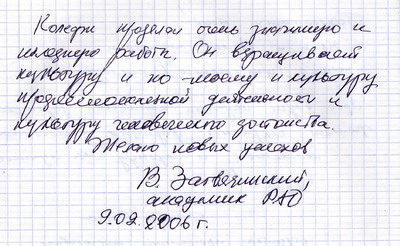 Колледж проделал очень значимую и
полезную работу. Он взращивает
культуру и по-моему и культуру
профессиональной деятельности и
культуру человеческого достоинства.
Желаю новых успехов
В. Загвязинский,
академик РАО
9.02.2006 г.